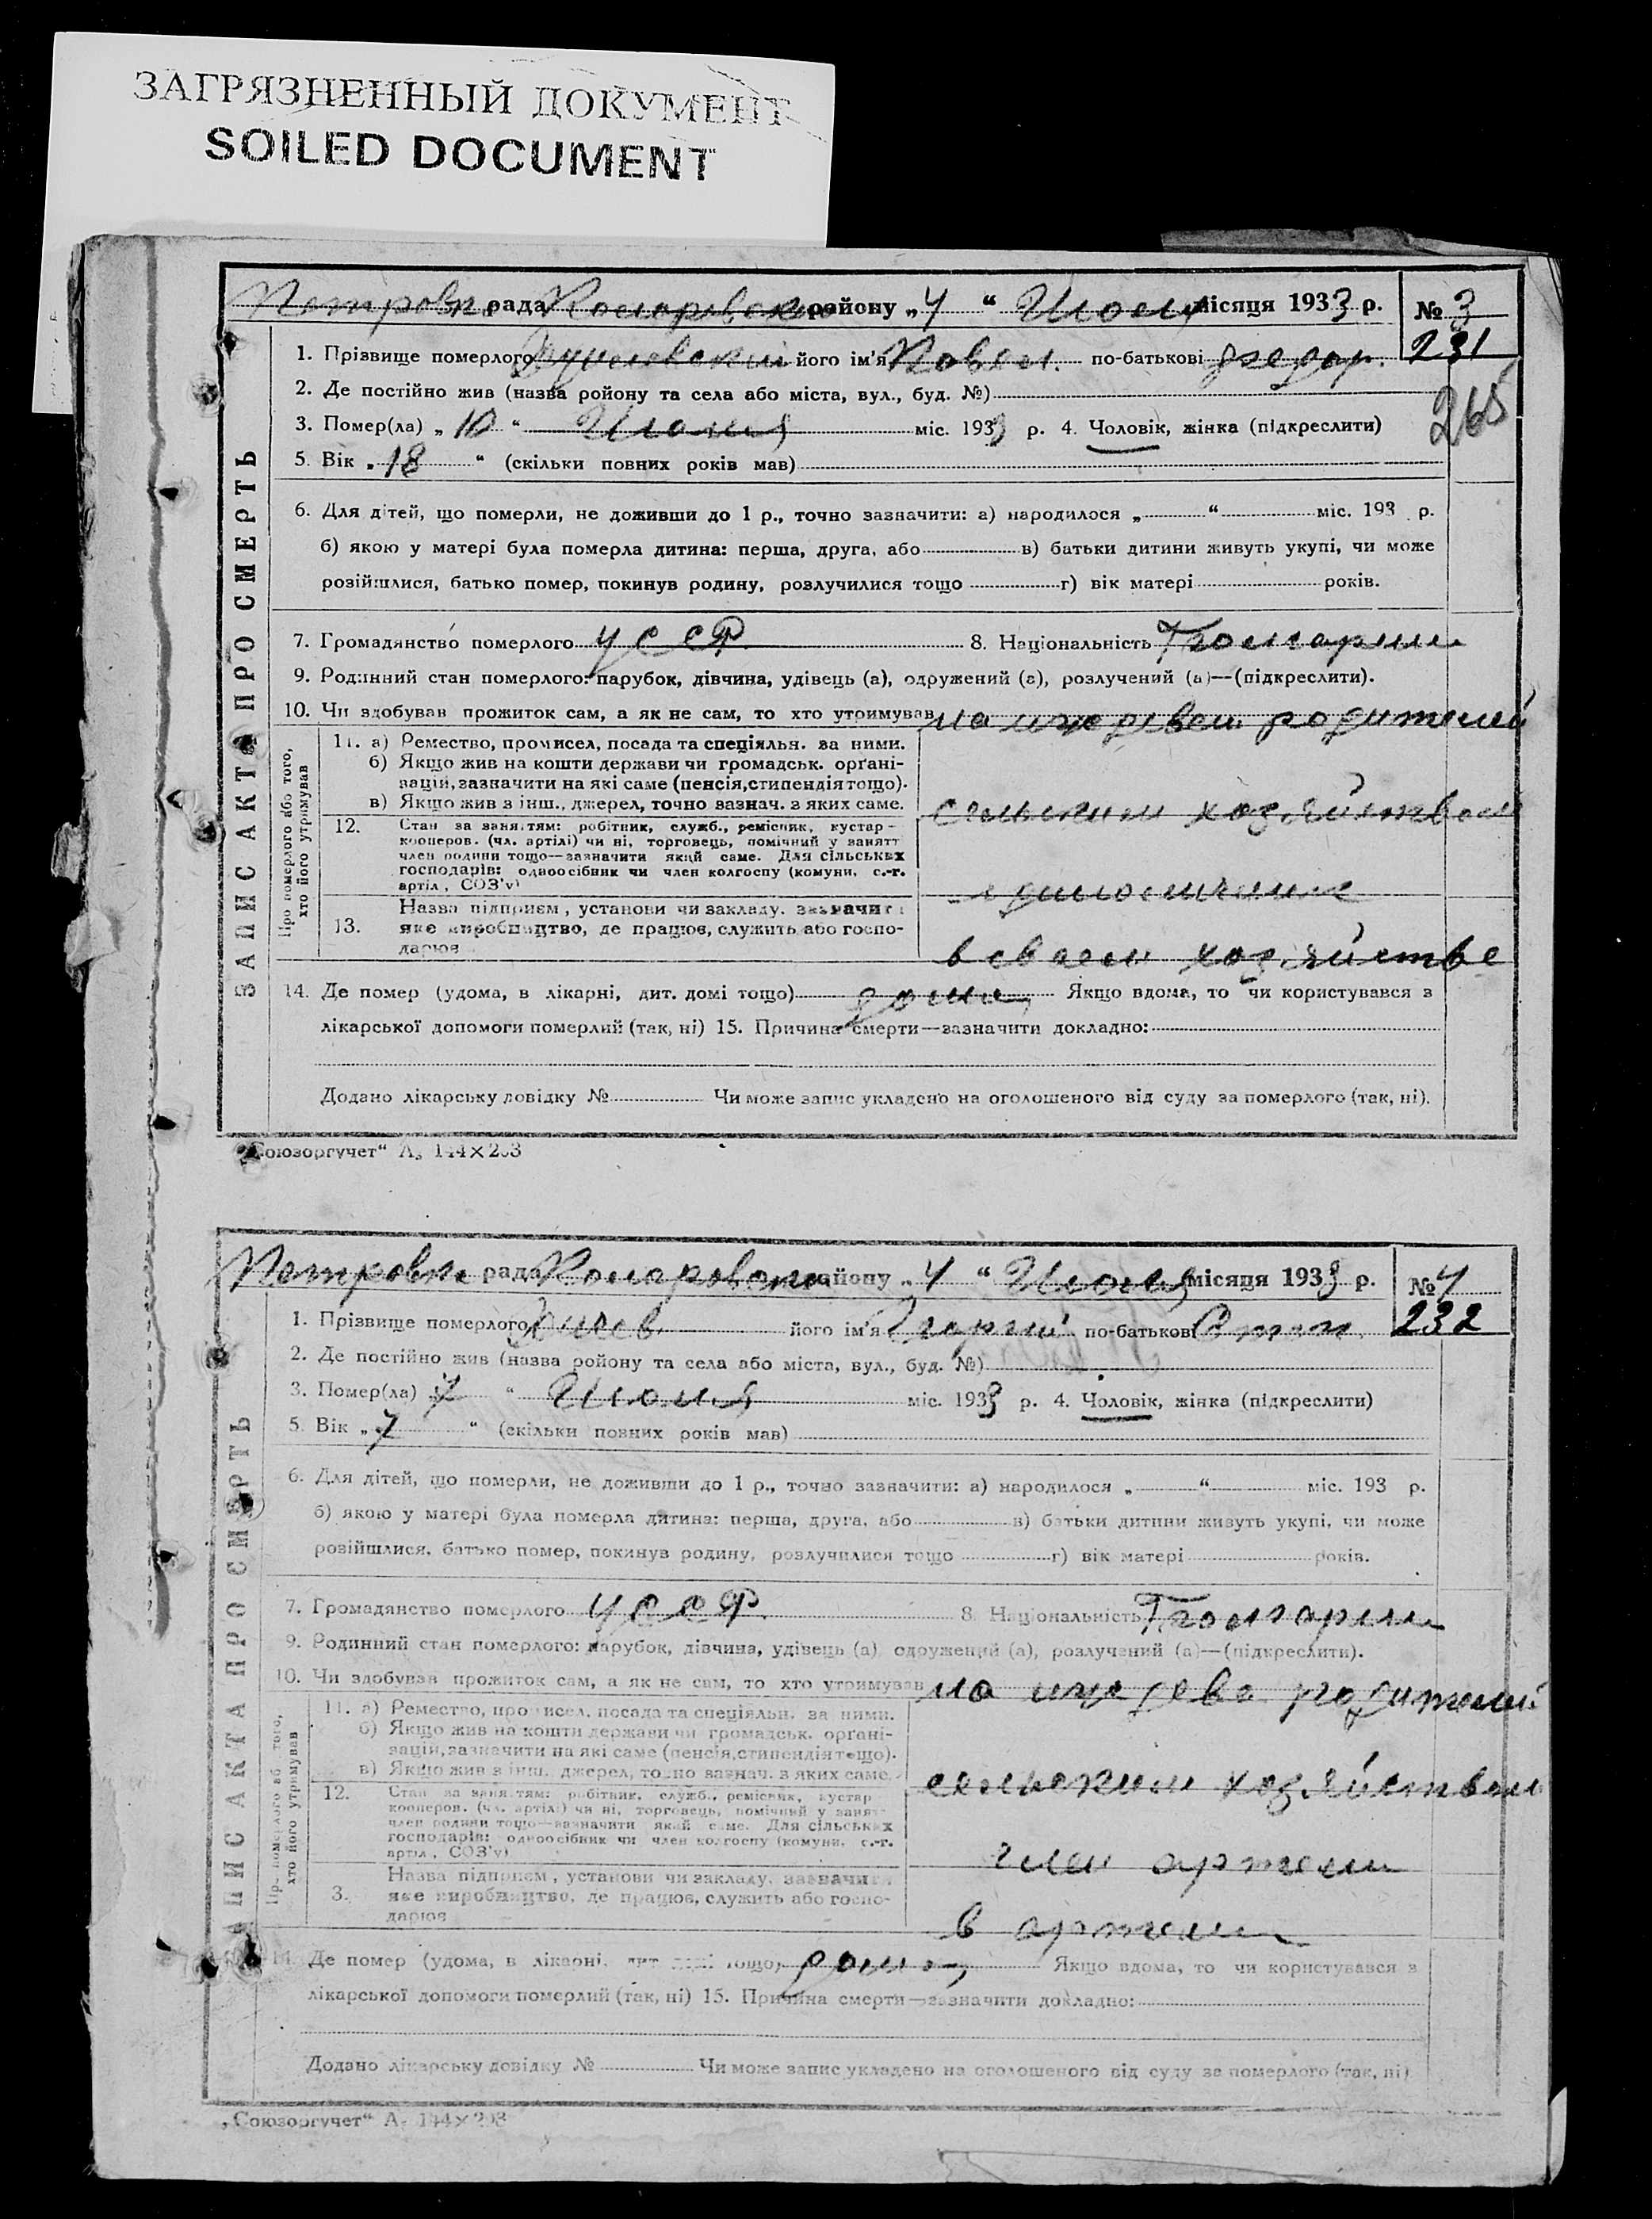 ЗАГРЯЗНЕННЫЙ ДОКУМЕНТ
SOILED DOCUMENT
ЗАПИС АКТА ПРО СМЕРТЬ
рада району „4“ місяця 1933 р. № 3
231
265
1. Прізвище померлого його ім'я по-батькові
2. Де постійно жив (назва ройону та села або міста, вул., буд. №)
3. Помер(ла) „10“ Июля міс. 1933 р. 4. Чоловік, жінка (підкреслити)
5. Вік „18“ (скільки повних років мав)
6. Для дітей, що померли, не доживши до 1 р., точно зазначити: а) народилося „ “ міс. 193 р.
б) якою у матері була померла дитина: перша, друга, або в) батьки дитини живуть укупі, чи може
розійшлися, батько помер, покинув родину, розлучилися тощо г) вік матері років.
7. Громадянство померлого УССР 8. Національність
9. Родинний стан померлого: парубок, дівчина, удівець (а), одружений (а), розлучений (а)—(підкреслити).
10. Чи здобував прожиток сам, а як не сам, то хто утримував на родителей
Про померлого або того, хто його утримував
11. а) Ремество, промисел, посада та спеціяльн. за ними.
б) Якщо жив на кошти держави чи громадськ. органі-
зацій, зазначити на які саме (пенсія, стипендія тощо).
в) Якщо жив з інш., джерел, точно вазнач. з яких саме. сельским хозяйством
12. Стан за заняттям: робітник, служб., ремісник, кустар-
кооперов. (чл. артілі) чи ні, торговець, помічний у занятт
член родини тощо—зазначити який саме. Для сільських
господарів: одноосібник чи член колгоспу (комуни, с.-г.
артіл, СОЗ'у)
Назва підприєм, установи чи закладу, зазначити
13. яке виробництво, де працює, служить або госпо-
дарює в своем хозяйстве
14. Де помер (удома, в лікарні, дит. домі тощо) дома Якщо вдома, то чи користувався з
лікарської допомоги померлий (так, ні) 15. Причина смерти—зазначити докладно:
Додано лікарську довідку № Чи може запис укладено на оголошеного від суду за померлого (так, ні).
„Союзоргучет“ А5 144×203
ЗАПИС АКТА ПРО СМЕРТЬ
рада району „4“ Июля місяця 1933 р. № 4
232
1. Прізвище померлого його ім'я по-батькові
2. Де постійно жив (назва ройону та села або міста, вул., буд. №)
3. Помер(ла) 7 “ Июля міс. 1933 р. 4. Чоловік, жінка (підкреслити)
5. Вік „7“ (скільки повних років мав)
6. Для дітей, що померли, не доживши до 1 р., точно зазначити: а) народилося „ “ міс. 193 р.
б) якою у матері була померла дитина: перша, друга, або в) батьки дитини живуть укупі, чи може
розійшлися, батько помер, покинув родину, розлучилися тощо г) вік матері років.
7. Громадянство померлого УССР 8. Національність
9. Родинний стан померлого: парубок, дівчина, удівець (а) одружений (а), розлучений (а)—(підкреслити).
10. Чи здобував прожиток сам, а як не сам, то хто утримував на родителей
Про померлого або того, хто його утримував
11. а) Ремество, промисел, посада та спеціяльн. за ними.
б) Якщо жив на кошти держави чи громадськ. органі-
зацій, зазначити на які саме (пенсія, стипендія тощо).
в) Якщо жив з інш. джерел, точно вазнач. з яких саме. сельским хозяйством
12. Стан за заняттям: робітник, служб., ремісник, кустар
кооперов. (чл. артілі) чи ні, торговець, помічний у занятт
член родини тощо—зазначити який саме. Для сільських
господарів: одноосібник чи член колгоспу (комуни, с.-г.
артіл, СОЗ'у) член артели
Назва підприєм, установи чи закладу, зазначити
3. яке виробництво, де працює, служить або госпо-
дарює в артели
14. Де помер (удома, в лікарні, дит. домі тощо) дома Якщо вдома, то чи користувався з
лікарської допомоги померлий (так, ні) 15. Причина смерти—зазначити докладно:
Додано лікарську довідку № Чи може запис укладено на оголошеного від суду за померлого (так, ні)
„Союзоргучет“ А5 144×203